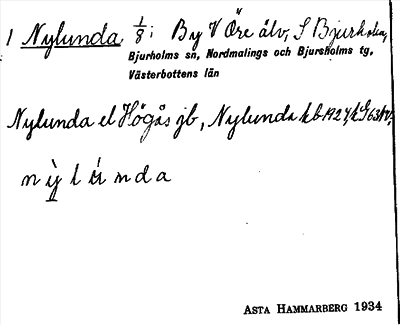 1 Nylunda 1/8; By V Öre älv, S Bjurholm,
Bjurholms sn, Nordmalings och Bjursholms tg,
Västerbottens län
Nylunda el Högås jb, Nylunda kb 1924, k G63
nylunda
ASTA HAMMARBERG 1934